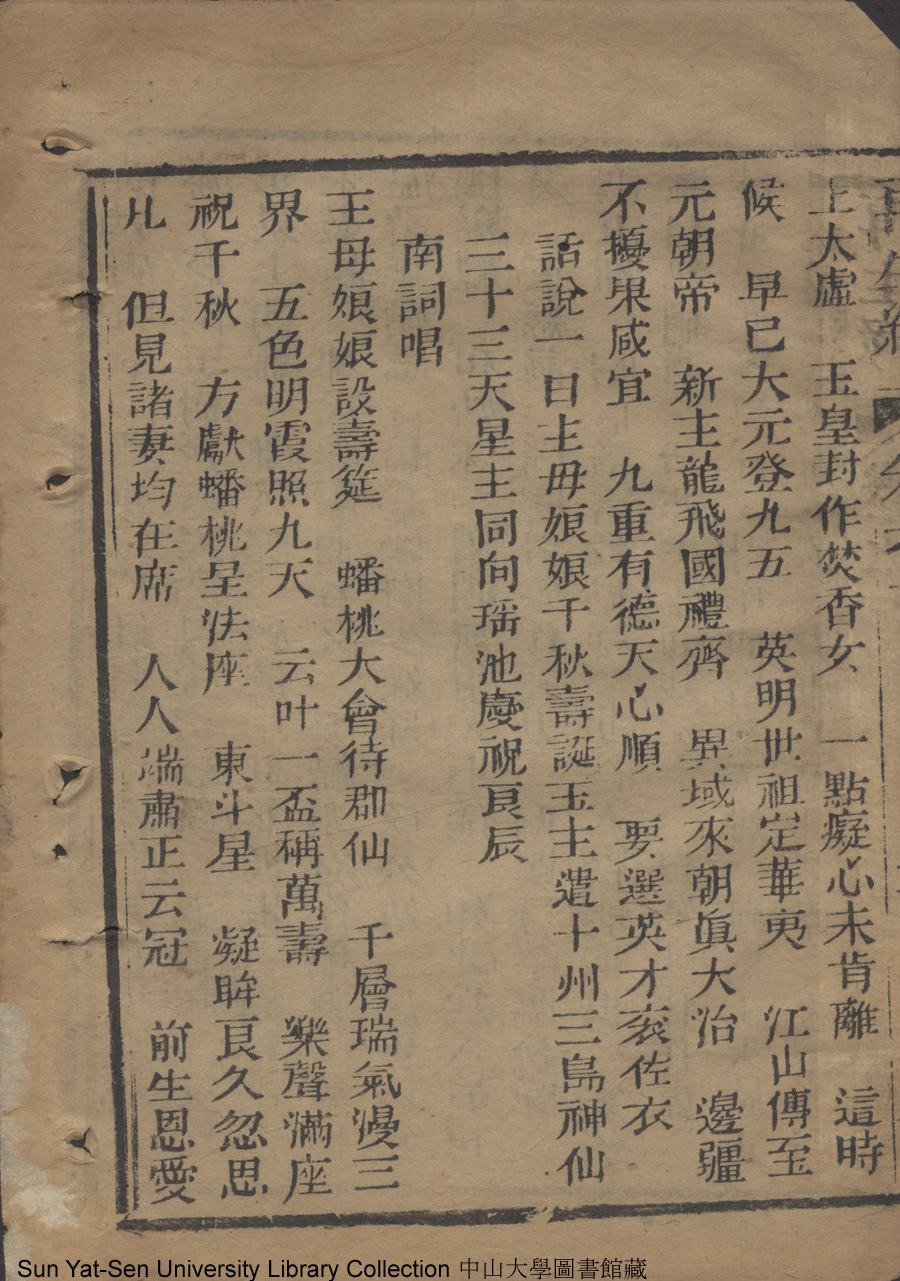 上太虛　玉皇封作焚香女　一點癡心未肯離　這時
候　早已大元登九五　英明世祖定華夷　江山傳至
元朝帝　新主龍飛國禮齊　異域來朝眞大治　邊疆
不擾果咸宜　九重有德天心順　要選英才衮佐衣
話說一日主毋娘娘千秋壽誕玉主遣十州三島神仙
三十三天星主同向瑶池慶祝良辰
南詞唱
王母娘娘設壽筵　蟠桃大會待郡仙　千層瑞氣漫三
界　五色明霞照九天　云叶一盃稱萬壽　樂聲滿座
祝千秋　方獻蟠桃呈法座　東斗星　凝眸良久忽思
凡　但見諸妻均在席　人人端肅正云冠　前生恩愛
Sun Yat-Sen University Library Collection 中山大學圖書館藏